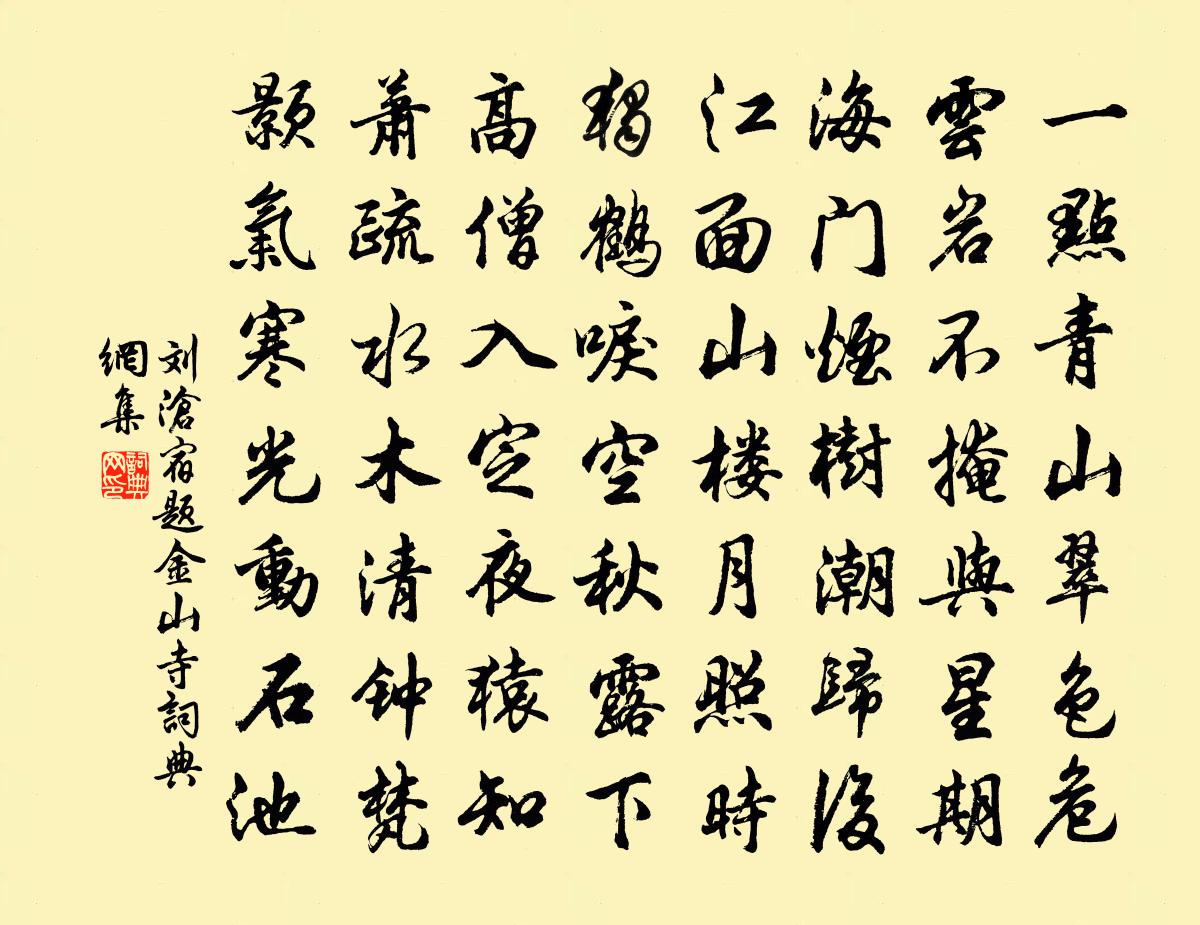 一點青山翠色危
雲岩不掩與星期
海门煙樹潮歸後
江面山楼月照時
獨鶴唳空秋露下
高僧入定夜猿知
蕭疏水木清钟梵
颢氣寒光動石池
刘滄宿题金山寺詞典
網集
詞典網印